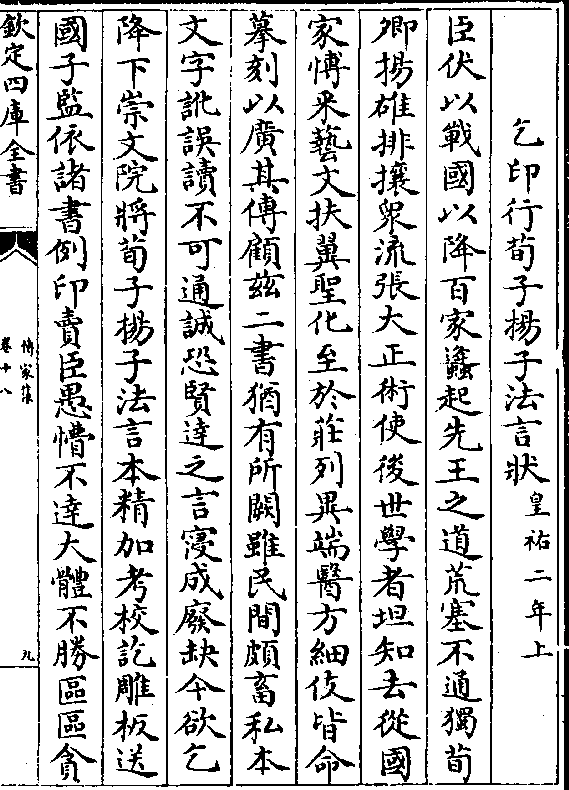 乞印行荀子揚子法言狀皇祐二年上
臣伏以戰國以降百家蠭起先王之道荒塞不通獨荀
卿揚雄排攘衆流張大正術使後世學者坦知去從國
家博采藝文扶翼聖化至於莊列異端醫方細伎皆命
摹刻以廣其傳顧茲二書猶有所闕雖民間頗畜私本
文字訛誤讀不可通誠恐賢達之言寖成廢缺今欲乞
降下崇文院將荀子揚子法言本精加考校訖雕板送
國子監依諸書例印賣臣愚懵不達大體不勝區區貪
欽定四庫全書
傳家集
卷十八
九